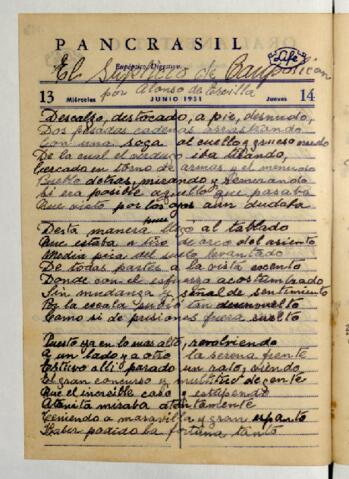 PANCRASIL
Eupéptico, Digestivo
Life
El Suplicio de Caupolicán
por Alonso de Ercilla
13 Miércoles JUNIO 1951 Jueves 14
Descalzo, destocado, a pie, desnudo,
Dos pesadas cadenas arrastrando
Con una soga al cuello y grueso nudo
De la cual el verdugo iba tirando,
Cercado en torno de armas y el menudo
Pueblo detrás, mirando y remirando
Si era posible aquello que pasaba
Que visto por los ojos aun dudaba
Desta manera pues llegó al tablado
Que estaba a tiro de arco del asiento
Media pica del suelo levantado
De todas partes a la vista exento
Donde con el esfuerzo acostumbrado
Sin mudanza y señal de sentimiento
Por la escala subió tan desenvuelto
Como si de prisiones fuera suelto
Puesto ya en lo mas alto, revolviendo
A un lado y a otro la serena frente
Estuvo alli parado un rato, viendo
El gran concurso y multitud de gente
Que el increible caso y estupendo
Atonita miraba atentamente
Teniendo a maravilla y gran espanto
Haber podido la fortuna tanto